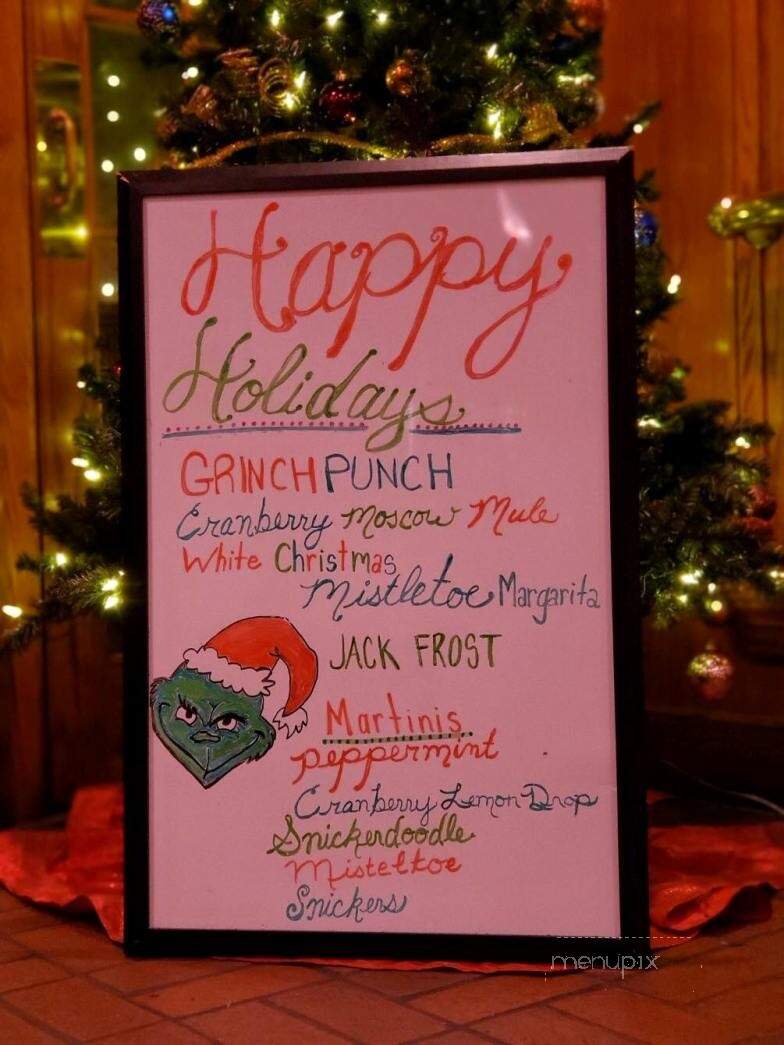 Happy
Holidays
GRINCH PUNCH
Cranberry Moscow Mule
White Christmas
Mistletoe Margarita
JACK FROST
Martinis
peppermint
Cranberry Lemon Drop
Snickerdoodle
Misteltoe
Snickers
menupix